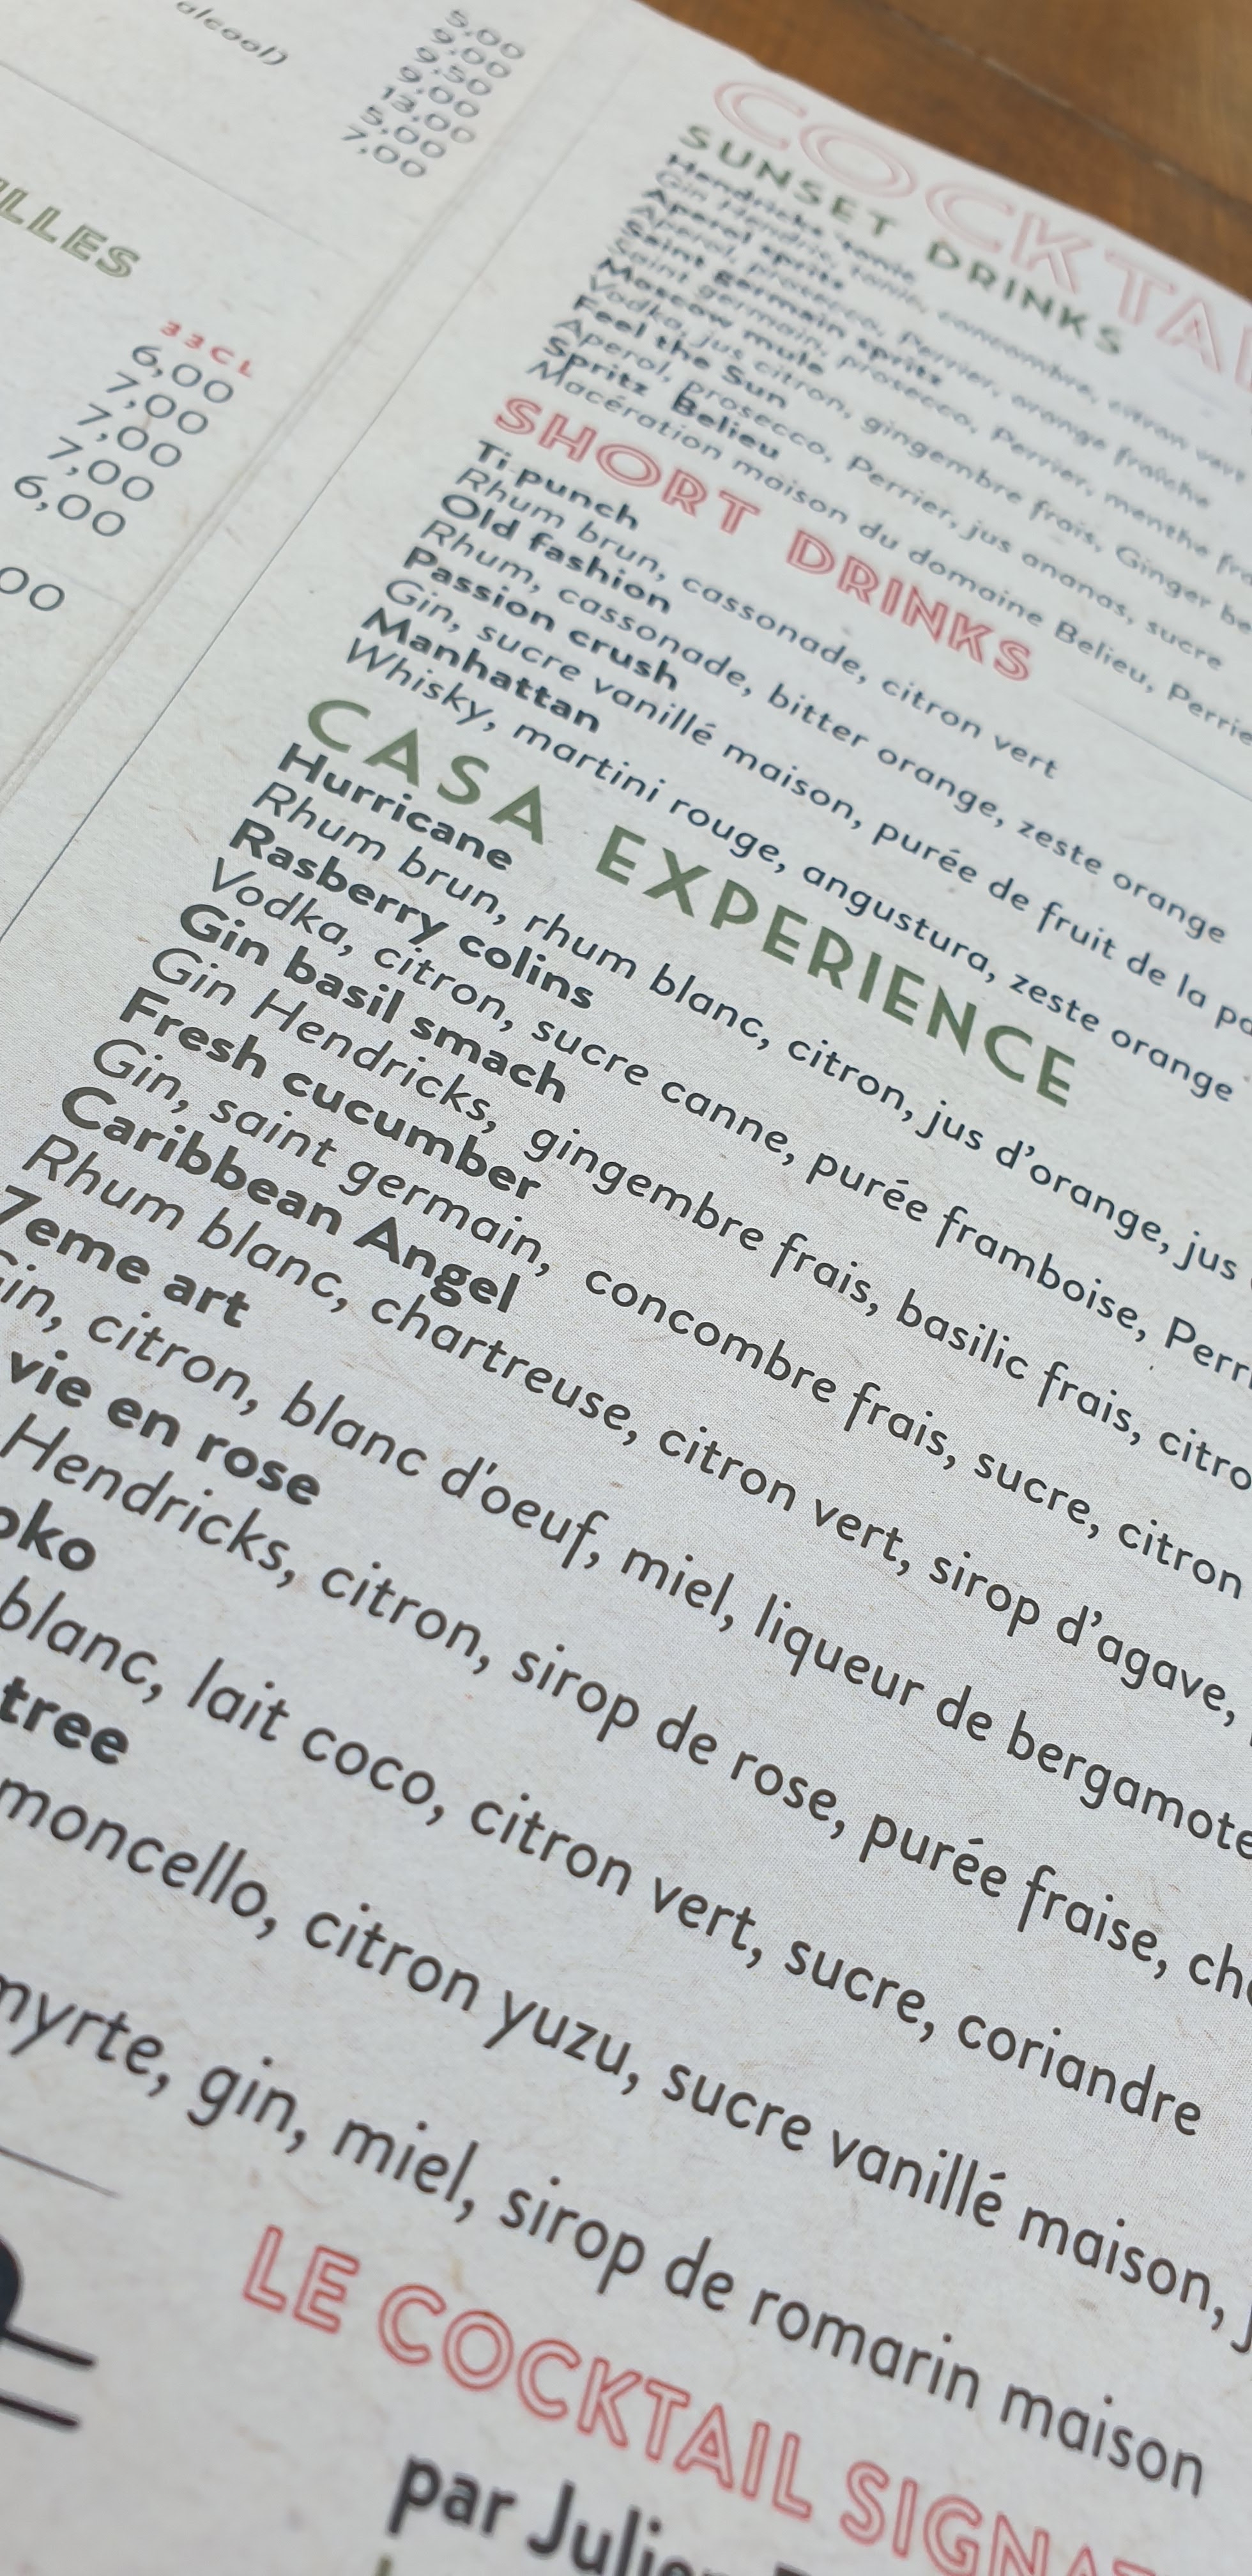 alcool)
5,00
9,00
9,50
9,00
13,00
5,00
7,00
33CL
6,00
7,00
7,00
7,00
6,00
COCKTA
SUNSET DRINKS
Hendricks tonic
Gin Hendricks, tonic, concombre, citron vert
Aperol spritz
Aperol, prosecco, Perrier, orange fraîche
Saint germain spritz
Saint germain, prosecco, Perrier, menthe
Moscow mule
Vodka, jus citron, gingembre frais, Ginger
Feel the Sun
Aperol, prosecco, Perrier, jus ananas, sucre
Spritz Belieu
Macération maison du domaine Belieu,
SHORT DRINKS
Ti punch
Rhum brun, cassonade, citron vert
Old fashion
Rhum, cassonade, bitter orange, zeste orange
Passion crush
Gin, sucre vanillé maison, purée de fruit de la
Manhattan
Whisky, martini rouge, angustura, zeste orange
CASA EXPERIENCE
Hurricane
Rhum brun, rhum blanc, citron, jus d'orange, jus
Rasberry colins
Vodka, citron, sucre canne, purée framboise,
Gin basil smach
Gin Hendricks, gingembre frais, basilic frais, citro
Fresh cucumber
Gin, saint germain, concombre frais, sucre, citron
Caribbean Angel
Rhum blanc, chartreuse, citron vert, sirop d'agave,
7eme art
in, citron, blanc d'oeuf, miel, liqueur de bergamote
vie en rose
Hendricks, citron, sirop de rose, purée fraise,
oko
blanc, lait coco, citron vert, sucre, coriandre
tree
moncello, citron yuzu, sucre vanillé maison,
myrte, gin, miel, sirop de romarin maison
LE COCKTAIL SIGNA
par